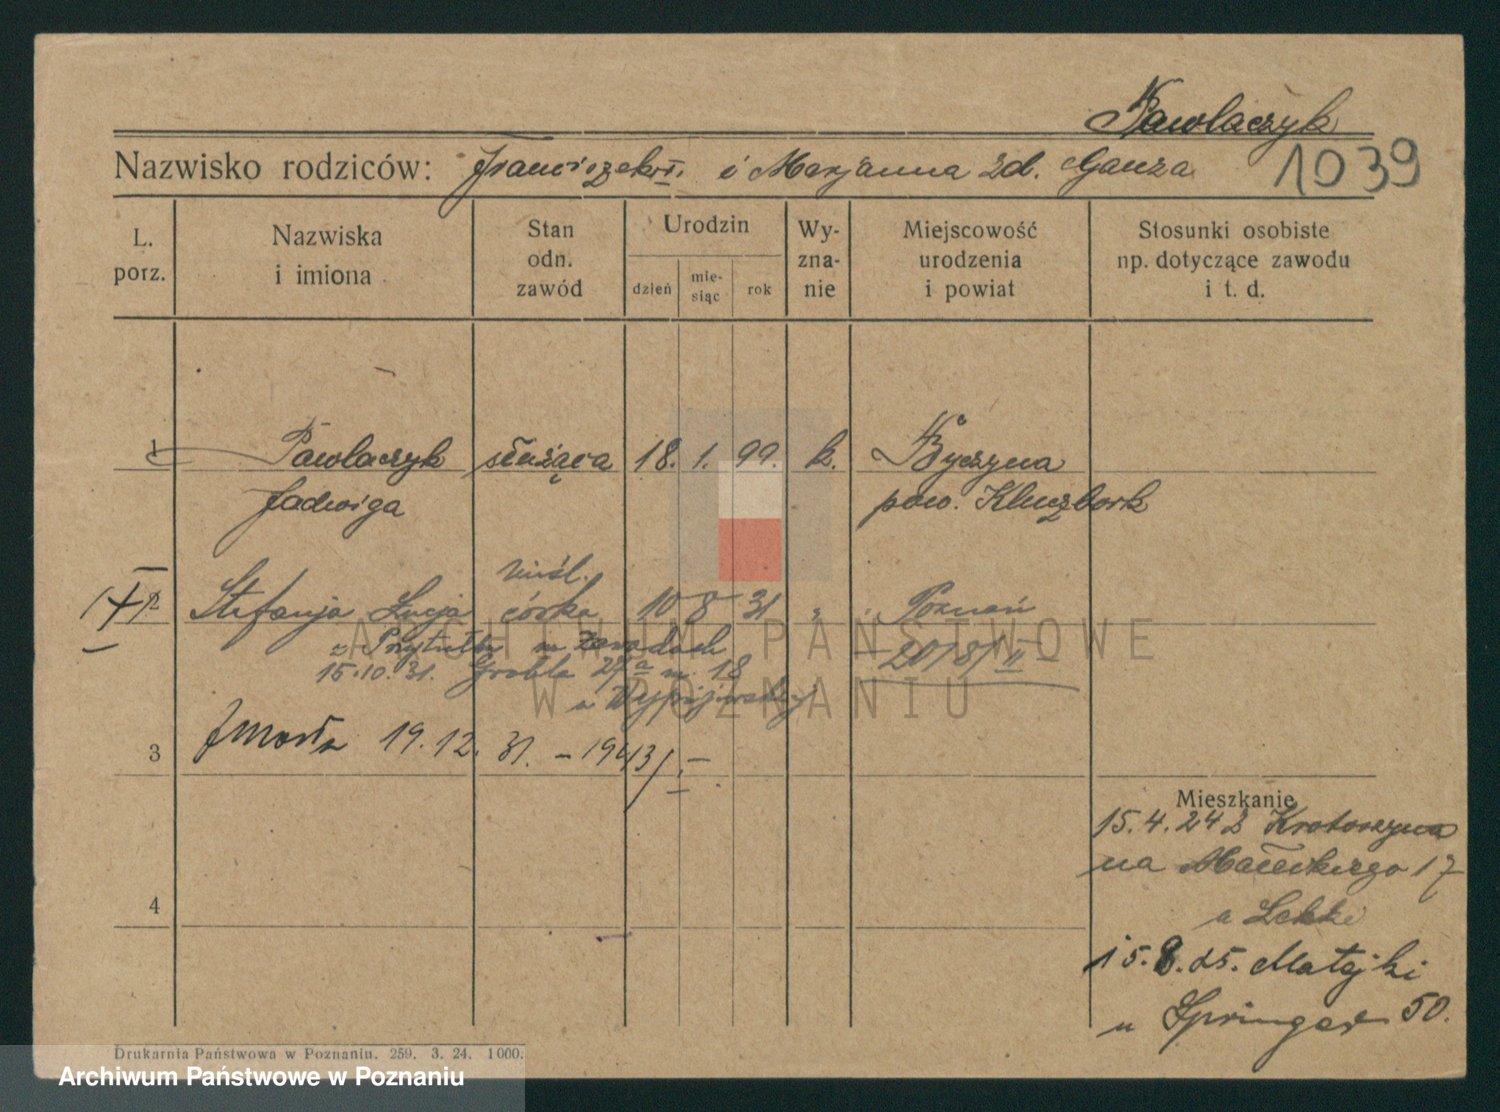 Pawlaczyk
Nazwisko rodziców: Franciszek i Marjanna zd. Ganza
1039
L. porz.
Nazwiska i imiona
Stan odn. zawód
Urodzin
dzień
mie-siąc
rok
Wy-zna-nie
Miejscowość urodzenia i powiat
Stosunki osobiste np. dotyczące zawodu i t. d.
1 Pawlaczyk służąca 18. 1. 99. k. Byczyna
Jadwiga pow. Kluczbork
2 Stefanja Łucja nieśl. córka 10 8 31 " Poznań
z Przytułku w Zawadach 2018/II
15.10.31. Grobla 27a m. 18
u
Zmarła 19.12. 31. – 1943/I –
3
4
Mieszkanie
15.4.24 z Krotoszyna
na Małeckiego 17
u
15.8.25. Matejki
u Springer 50.
ARCHIWUM PAŃSTWOWE
W POZNANIU
Drukarnia Państwowa w Poznaniu. 259. 3. 24. 1000.
Archiwum Państwowe w Poznaniu